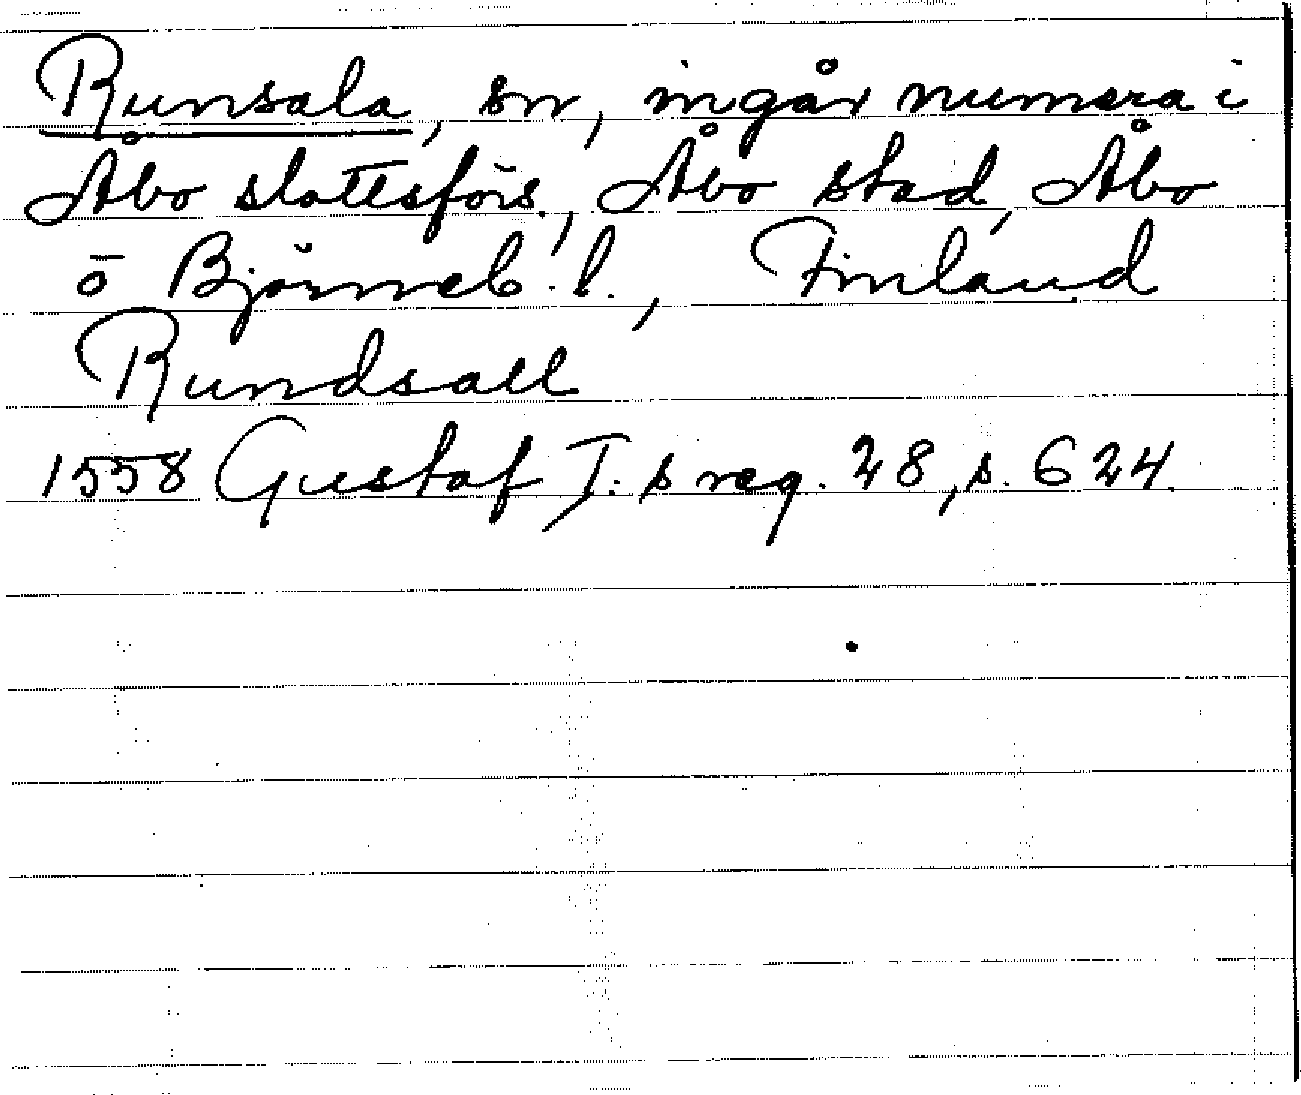 Runsala, sn, ingår numera i
Åbo slottsförs., Åbo stad, Åbo
o Björneb. l., Finland
Rundsall
1558 Gustaf I:s reg. 28, s. 624.